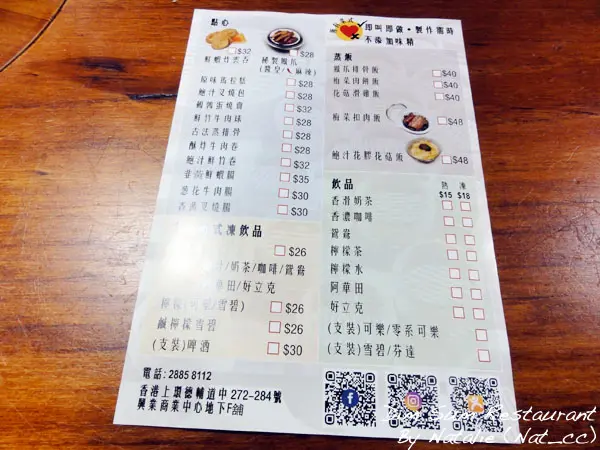 點心
$32
$28
鮮蝦炸雲吞
秘製鳳爪
(醬皇/麻辣)
原味馬拉糕 $28
鮑汁叉燒包 $28
蛋燒賣 $28
鮮竹牛肉球 $28
古法蒸排骨 $28
酥炸牛肉卷 $28
鮑汁鮮竹卷 $32
韭黃鮮蝦腸 $35
葱花牛肉腸 $30
香茜叉燒腸 $30
式凍飲品
$26
/奶茶/咖啡/鴛鴦
華田/好立克
檸檬(可樂/雪碧) $26
鹹檸檬雪碧 $26
(支裝)啤酒 $30
電話: 2885 8112
香港上環德輔道中 272-284號
興業商業中心地下F舖
即叫即做•製作需時
不添加味精
蒸飯
鳳爪排骨飯 $40
梅菜肉餅飯 $40
花菇滑雞飯 $40
梅菜扣肉飯 $48
鮑汁花膠花菇飯 $48
飲品
熱 凍
$15 $18
香滑奶茶
香濃咖啡
鴛鴦
檸檬茶
檸檬水
阿華田
好立克
(支裝)可樂/零系可樂
(支裝)雪碧/芬達
Restaurant
By Natalie (Nat_cc)